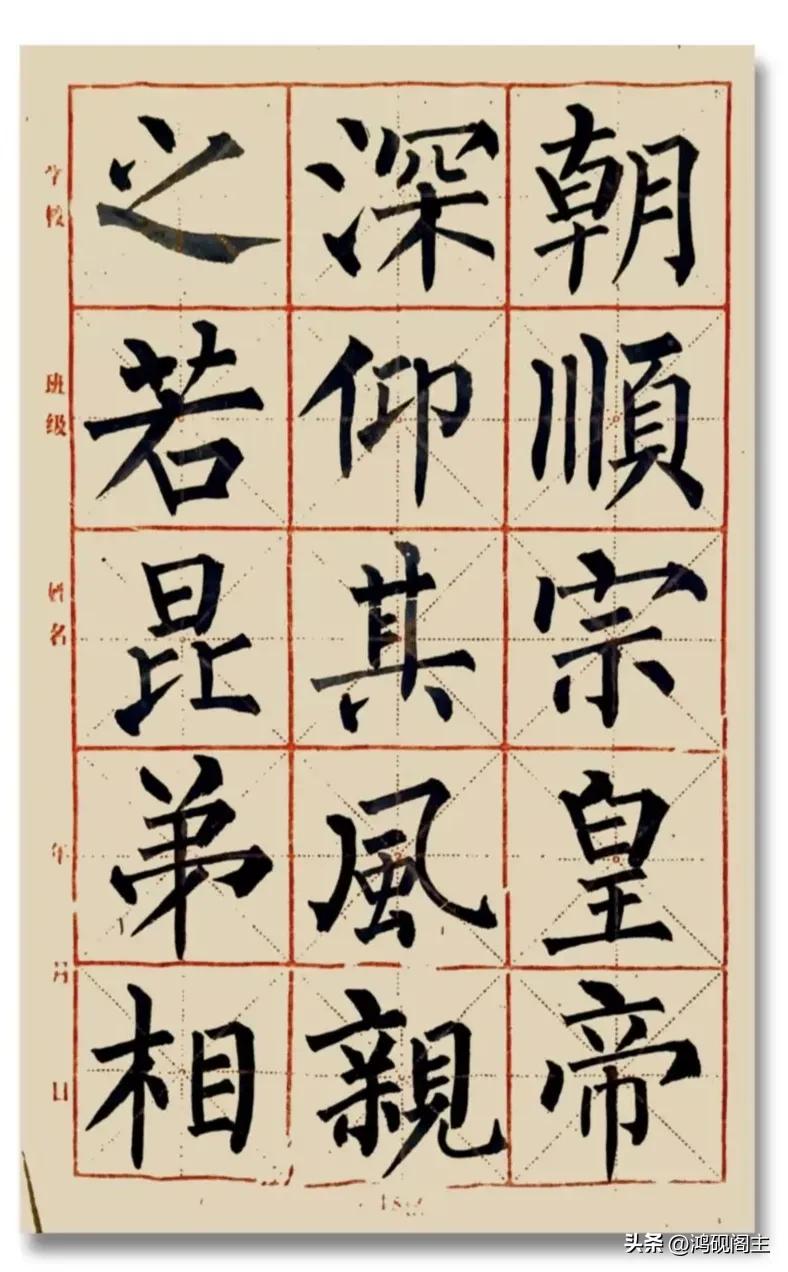 朝順宗皇帝
深仰其風親
之若昆弟相
学校
班级
姓名
年
月
日
头条 @鸿砚阁主